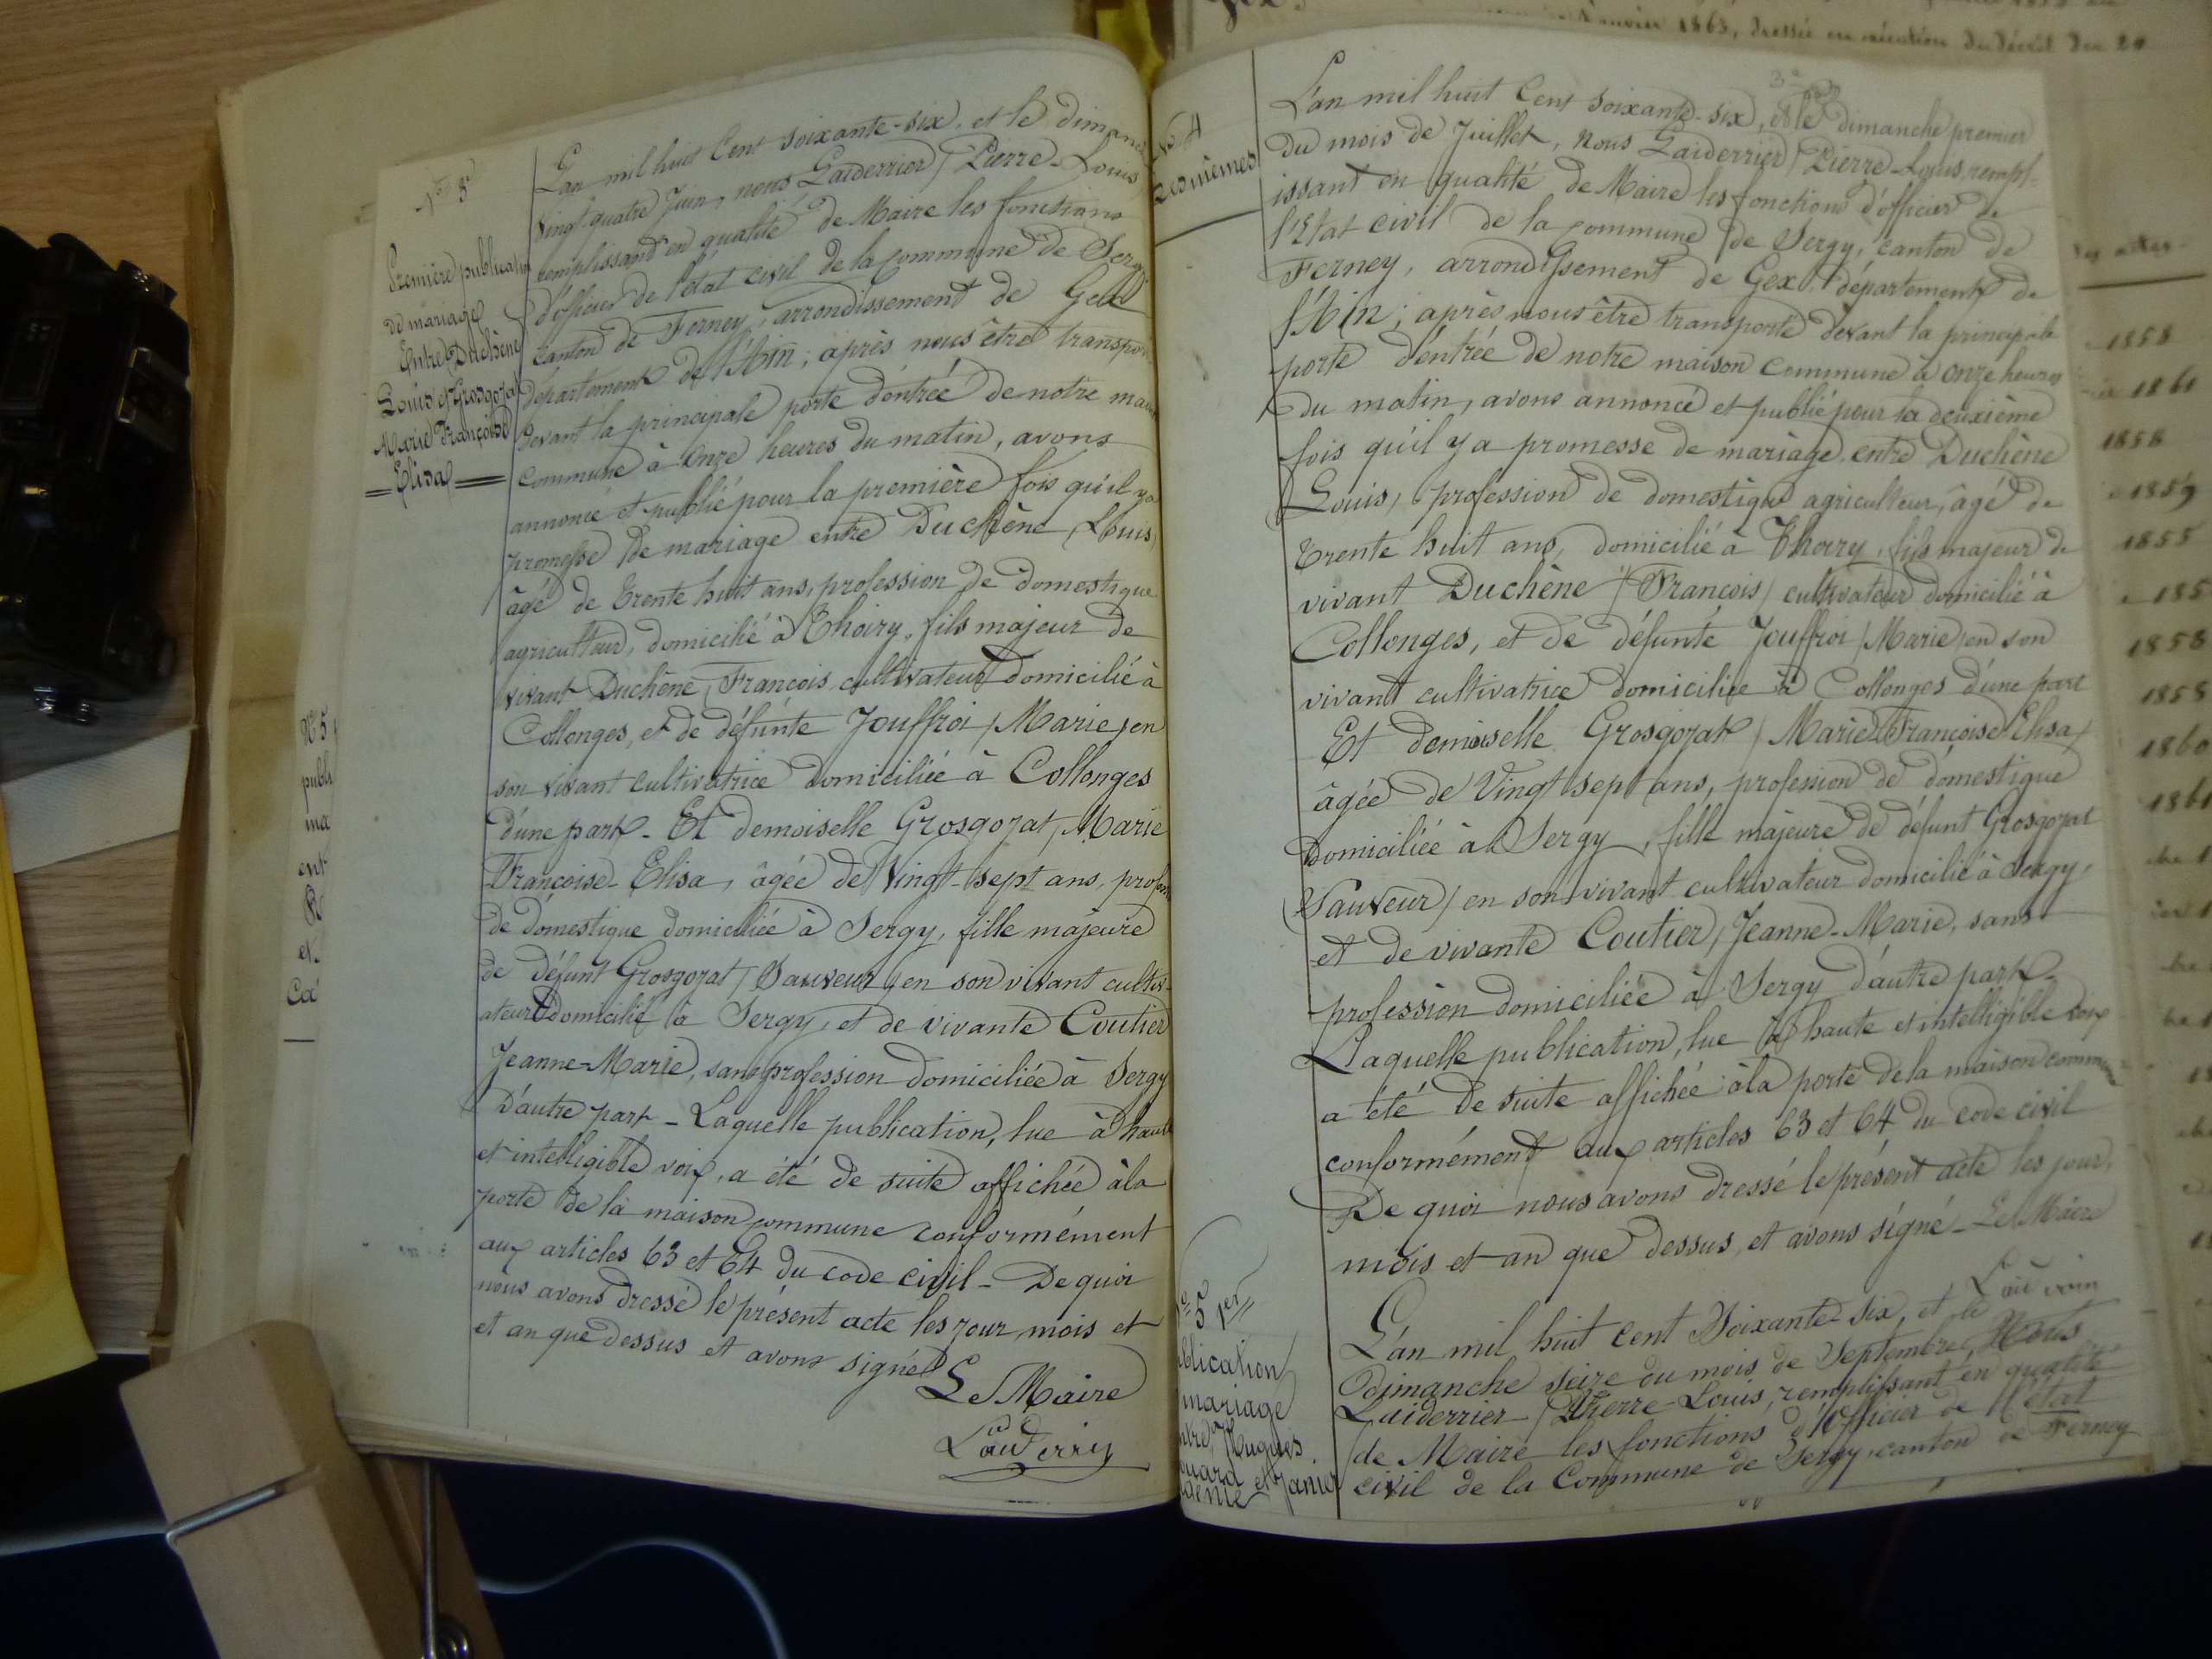 N° 3
Première publication
de mariage
Entre Duchène
Louis et Grosgojat
Marie Françoise
Elisa
L'an mil huit Cent soixante-six, et le dimanche
vingt-quatre Juin, nous Laiderrier / Pierre-Louis
remplissant en qualité de Maire les fonctions
d'officier de l'état civil de la commune de Sergy
canton de Ferney, arrondissement de Gex
département de l'Ain; après nous être transporté
devant la principale porte d'entrée de notre maison
commune à onze heures du matin, avons
annoncé et publié pour la première fois qu'il y a
promesse de mariage entre Duchène (Louis)
âgé de trente huit ans, profession de domestique
agriculteur, domicilié à Thoiry, fils majeur de
vivant Duchène, François, cultivateur domicilié à
Collonges, et de défunte Jouffroi / Marie / en
son vivant cultivatrice domiciliée à Collonges
d'une part. Et demoiselle Grosgojat, Marie
Françoise-Elisa, âgée de vingt-sept ans, profession
de domestique domiciliée à Sergy, fille majeure
de défunt Grosgojat / Sauveur / en son vivant cultiv-
ateur domicilié à Sergy, et de vivante Coutier
Jeanne-Marie, sans profession domiciliée à Sergy
d'autre part - Laquelle publication, lue à haute
et intelligible voix, a été de suite affichée à la
porte de la maison commune conformément
aux articles 63 et 64 du code civil - De quoi
nous avons dressé le présent acte les jour, mois et
et an que dessus et avons signé
Le Maire
N° 5
publi
ma
ent
et
Ca
N° 4
Les mêmes
L'an mil huit Cent soixante-six, et le dimanche premier
du mois de Juillet, nous Laiderrier / Pierre-Louis, rempl-
issant en qualité de Maire les fonctions d'officier de
l'Etat civil de la commune de Sergy, canton de
Ferney, arrondissement de Gex département de
l'Ain; après nous être transporté devant la principale
porte d'entrée de notre maison commune à onze heures
du matin, avons annoncé et publié pour la deuxième
fois qu'il y a promesse de mariage entre Duchène
Louis, profession de domestique agriculteur, âgé de
trente huit ans, domicilié à Thoiry, fils majeur de
vivant Duchène / François / cultivateur domicilié à
Collonges, et de défunte Jouffroi / Marie / en son
vivant cultivatrice domiciliée à Collonges d'une part
Et demoiselle Grosgojat / Marie Françoise Elisa /
âgée de Vingt sept ans, profession de domestique
domiciliée à Sergy, fille majeure de défunt Grosgojat
(Sauveur) en son vivant cultivateur domicilié à Sergy,
et de vivante Coutier, Jeanne-Marie, sans
profession domiciliée à Sergy d'autre part.
Laquelle publication, lue à haute et intelligible voix
a été de suite affichée à la porte de la maison commune
conformément aux articles 63 et 64 du code civil
De quoi nous avons dressé le présent acte les jour,
mois et an que dessus, et avons signé - Le Maire
N° 5 1er
publication
mariage
entre Hugues
L'an mil huit cent Soixante-six, et le
dimanche seize du mois de Septembre, Nous
Laiderrier / Pierre-Louis, remplissant en qualité
de Maire les fonctions d'Officier de l'état
civil de la Commune de Sergy, canton de Ferney
Janvier 1863, dressée en exécution du décret du 20
1858
1860
1858
1859
1855
185
1858
1858
1860
1861